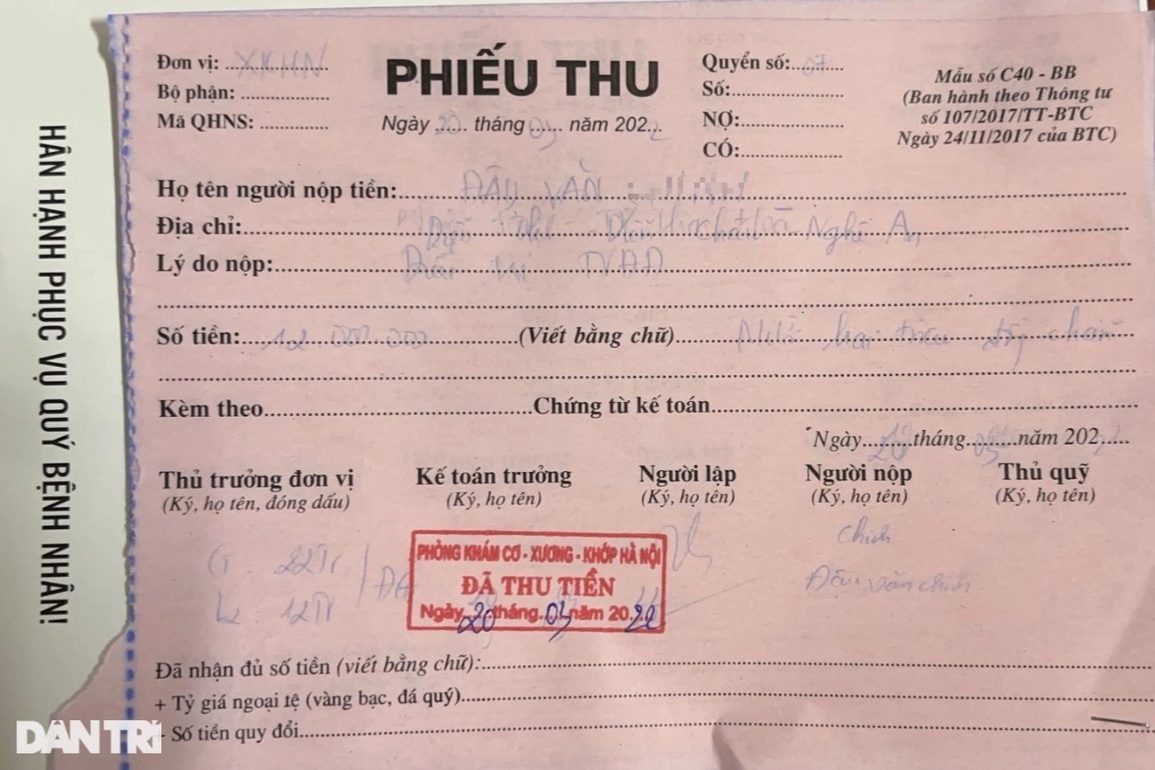 HÂN HẠNH PHỤC VỤ QUÝ BỆNH NHÂN!
Đơn vị: XKHN
Bộ phận:
Mã QHNS:
PHIẾU THU
Ngày 20 tháng 03 năm 2022
Quyển số: 07
Số:
NỢ:
CÓ:
Mẫu số C40 - BB
(Ban hành theo Thông tư
số 107/2017/TT-BTC
Ngày 24/11/2017 của BTC)
Họ tên người nộp tiền: ĐẬU VĂN
Địa chỉ: Nghệ An
Lý do nộp:
Số tiền: 12 000.000 (Viết bằng chữ) hai triệu chẵn
Kèm theo Chứng từ kế toán
Ngày 20 tháng 03 năm 2022
Thủ trưởng đơn vị
(Ký, họ tên, đóng dấu)
Kế toán trưởng
(Ký, họ tên)
Người lập
(Ký, họ tên)
Người nộp
(Ký, họ tên)
Thủ quỹ
(Ký, họ tên)
22Tr
12Tr
PHÒNG KHÁM CƠ - XƯƠNG - KHỚP HÀ NỘI
ĐÃ THU TIỀN
Ngày 20 tháng 03 năm 2022
Chích
Đậu văn chích
Đã nhận đủ số tiền (viết bằng chữ):
+ Tỷ giá ngoại tệ (vàng bạc, đá quý)
+ Số tiền quy đổi
DÂN TRÍ